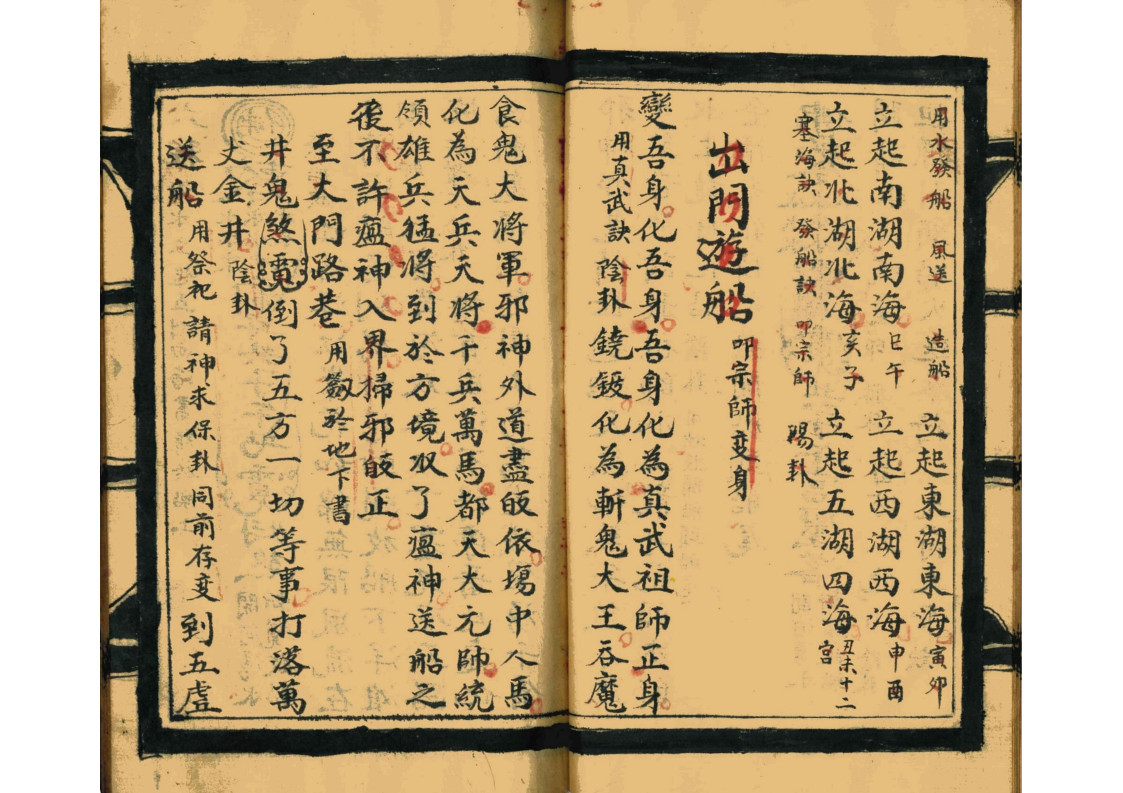 用水發船 風送 造船 立起東湖東海寅卯
立起南湖南海巳午 立起西湖西海申酉
立起北湖北海亥子 立起五湖四海丑未十二宮
塞海訣 發船訣 叩宗師 賜卦
出門遊船 叩宗師变身
變吾身化吾身吾身化為真武祖師正身
用真武訣 陰卦 鐃鈸化為斬鬼大王吞魔
食鬼大將軍邪神外道盡皈依塲中人馬
化為天兵天將千兵萬馬都天大元帥統
領雄兵猛將到於方境收了瘟神送船之
後不許瘟神入界掃邪皈正
至大門路巷 用劔於地下書
井鬼煞 倒了五方一切等事打落萬
丈金井 陰卦
送船 用祭祀 請神求保卦同前存变 到五虛